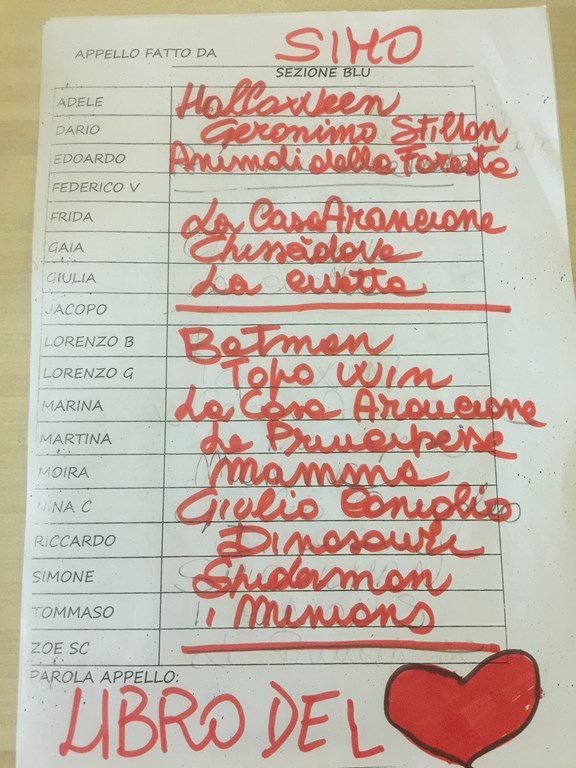 APPELLO FATTO DA SIMO
SEZIONE BLU
ADELE Halloween
DARIO Geronimo Stilton
EDOARDO Animali della Foresta
FEDERICO V
FRIDA La Casa Arancione
GAIA Chissàdove
GIULIA La civetta
JACOPO
LORENZO B Batman
LORENZO G Topo Win
MARINA La Casa Arancione
MARTINA Le Principesse
MOIRA Mamma
NINA C Giulio Coniglio
RICCARDO Dinosauri
SIMONE Spiderman
TOMMASO i Minions
ZOE SC
PAROLA APPELLO:
LIBRO DEL